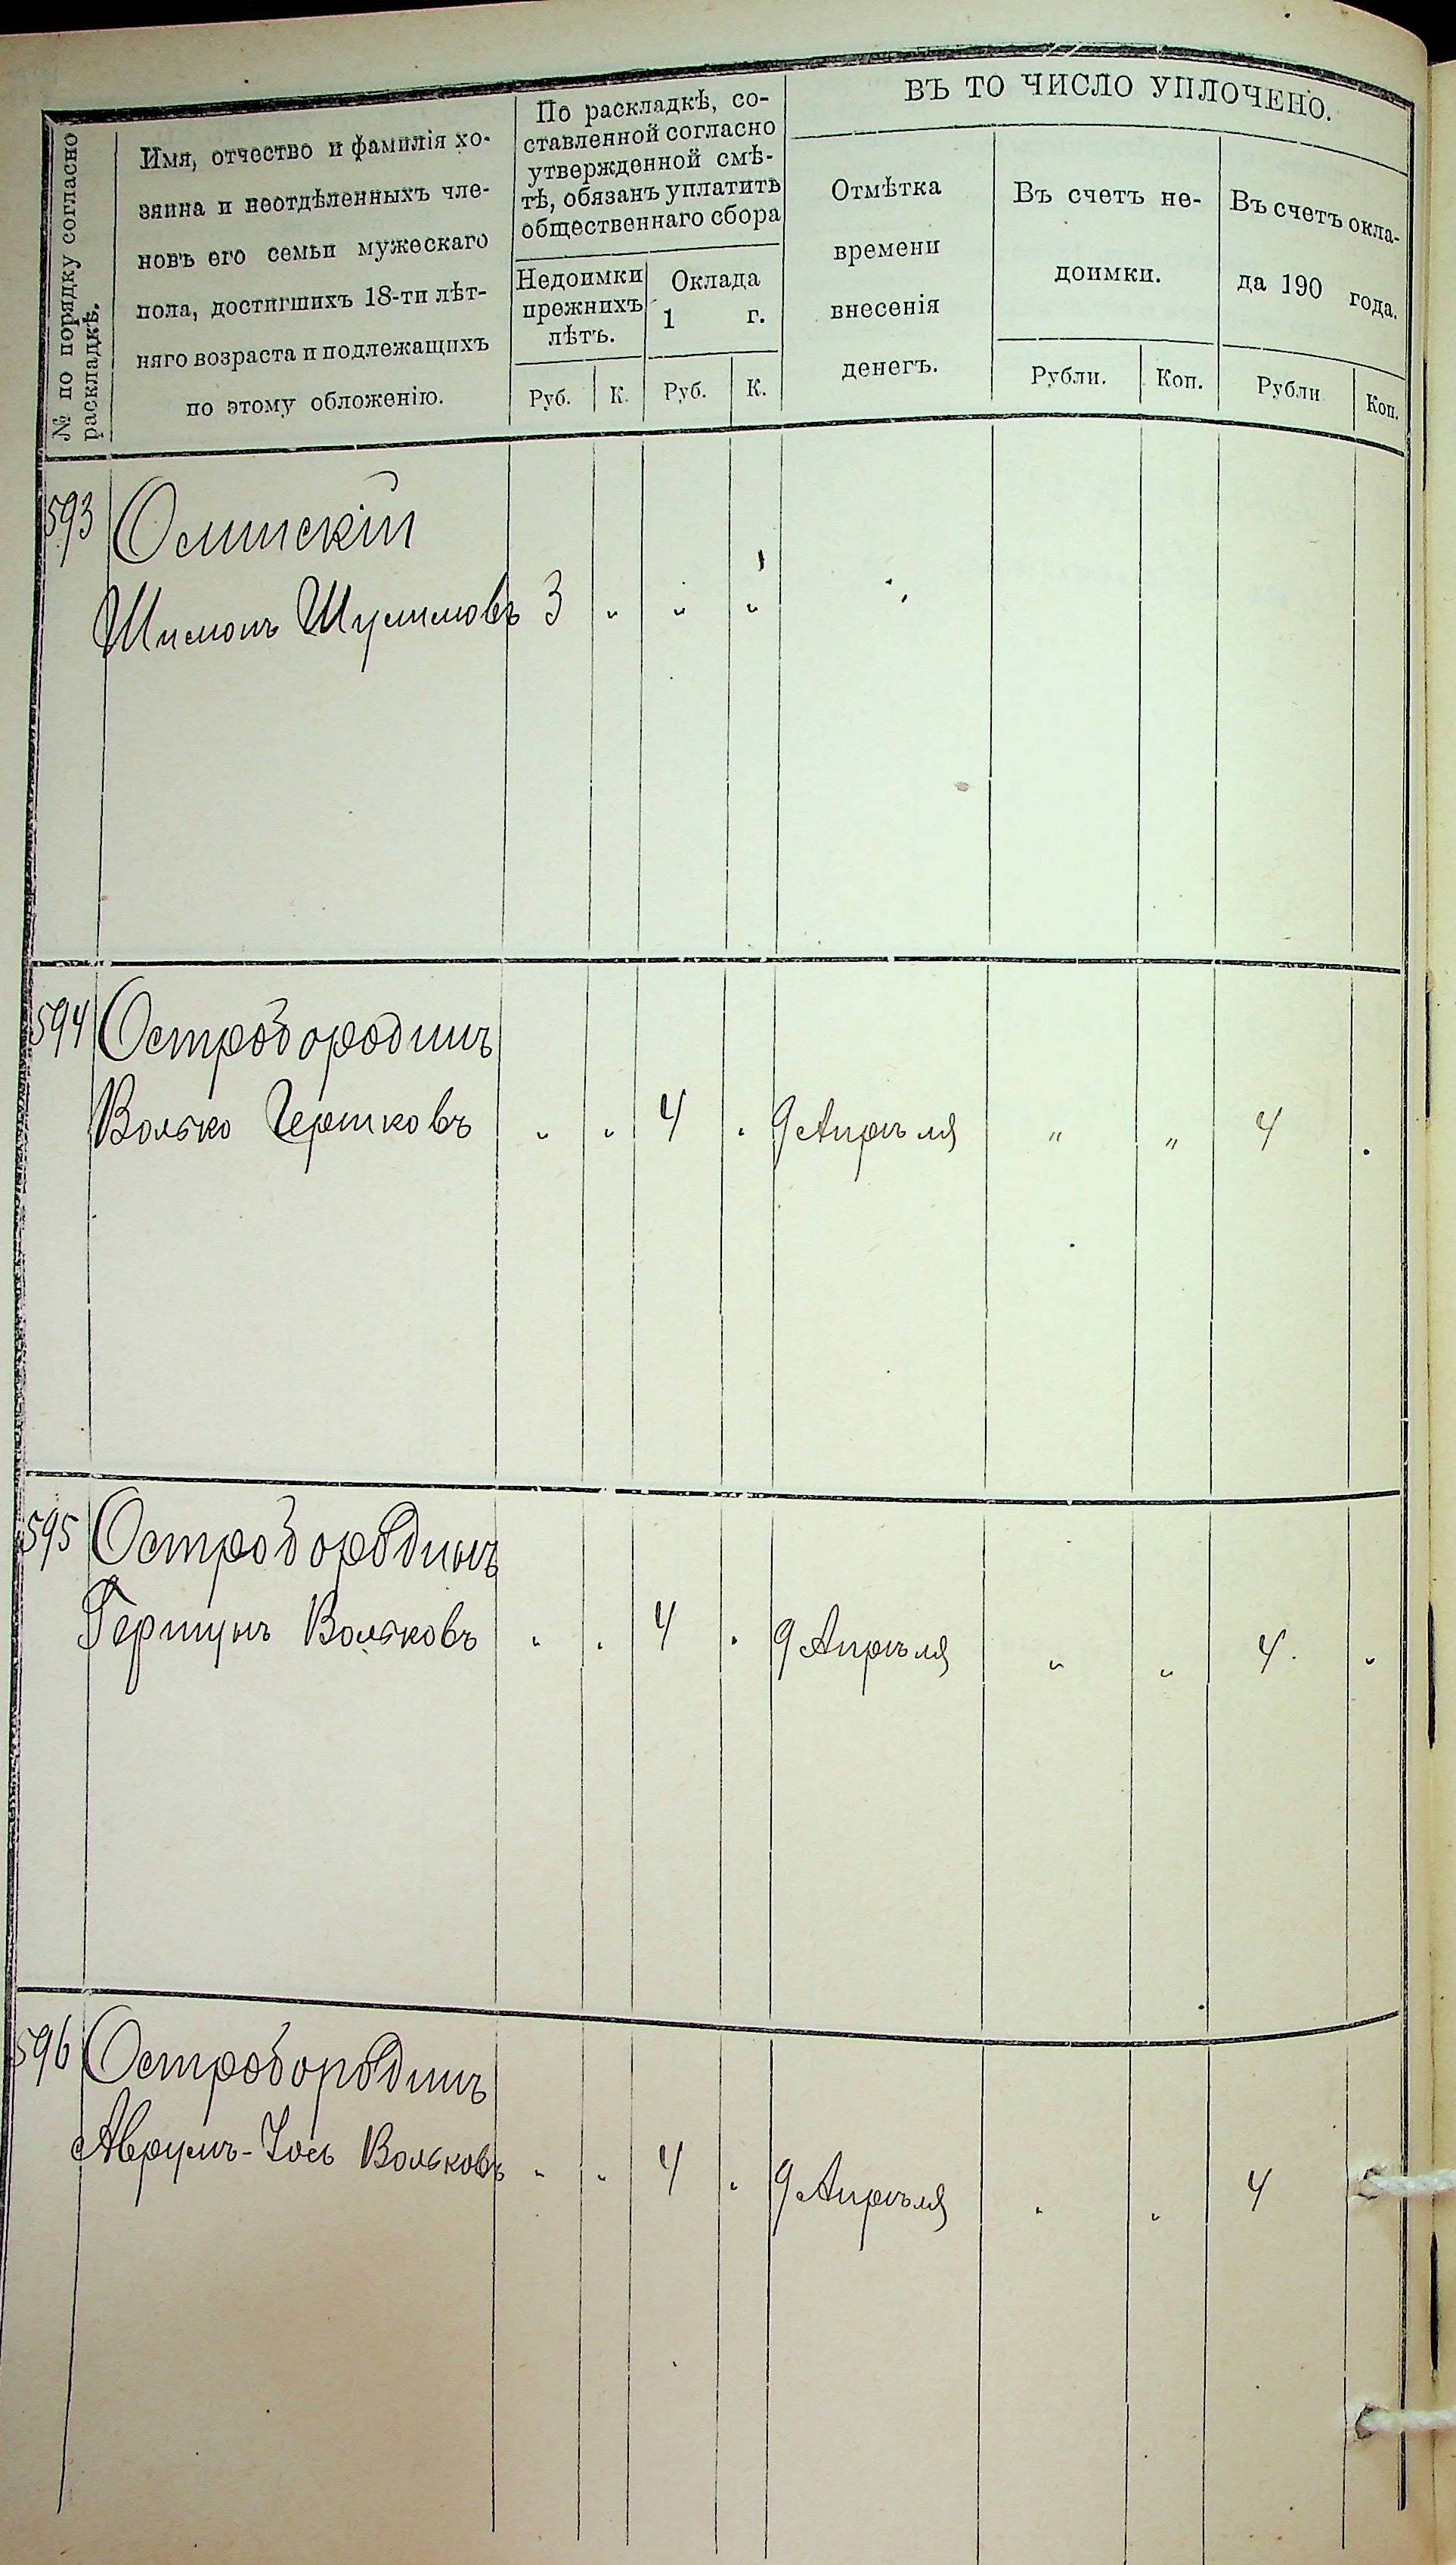 № по порядку согласно раскладкѣ.
Имя, отчество и фамилія хо-
зяина и неотдѣленныхъ чле-
новъ его семьи мужескаго
пола, достигшихъ 18-ти лѣт-
няго возраста и подлежащихъ
по этому обложенію.
По раскладкѣ, со-
ставленной согласно
утвержденной смѣ-
тѣ, обязанъ уплатить
общественнаго сбора
Недоимки
прежнихъ
лѣтъ.
Оклада
1 г.
Руб. К. Руб. К.
ВЪ ТО ЧИСЛО УПЛОЧЕНО.
Отмѣтка
времени
внесенія
денегъ.
Въ счетъ не-
доимки.
Рубли. Коп.
Въ счетъ окла-
да 190 года.
Рубли Коп.
593 Олинскій
Шимонъ 3 " " "
594 Остробородинъ
Волько Гершковъ " " 4 " 9 Апрѣля " " 4 "
595 Остробородинъ
Гершунъ Вольковъ " " 4 " 9 Апрѣля " " 4 "
596 Остробородинъ
Аврумъ-Іось Вольковъ " " 4 " 9 Апрѣля " " 4